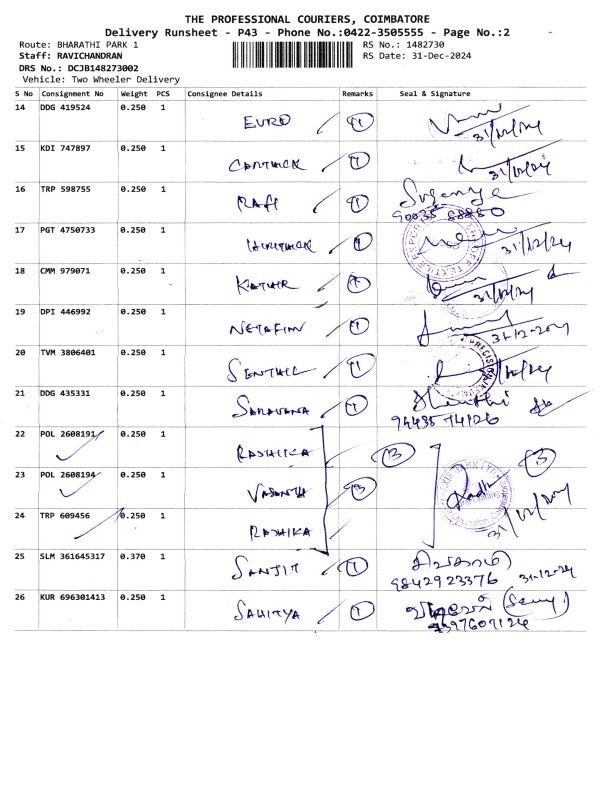 THE PROFESSIONAL COURIERS, COIMBATORE
Delivery Runsheet - P43 - Phone No.:0422-3505555 - Page No.:2 -
Route: BHARATHI PARK 1 RS No.: 1482730
Staff: RAVICHANDRAN RS Date: 31-Dec-2024
DRS No.: DCJB148273002
Vehicle: Two Wheeler Delivery
S No Consignment No Weight PCS Consignee Details Remarks Seal & Signature
14 DDG 419524 0.250 1 EURO 1 31/12/24
15 KDI 747897 0.250 1 CARTHICK 1 31/12/24
16 TRP 598755 0.250 1 RAFI 1 Suganya
90035 88880
17 PGT 4750733 0.250 1 HIRITHICK 1 31/12/24
18 CMM 979071 0.250 1 KATHIR 1 31/12/24
19 DPI 446992 0.250 1 NETAFIM 1 31-12-2024
20 TVM 3806401 0.250 1 SENTHIL 1 31/12/24
21 DDG 435331 0.250 1 SARAVANA 1
94435 74126
22 POL 2608191 0.250 1 RASHIKA 3 3
23 POL 2608194 0.250 1 VASANTH 3
24 TRP 609456 0.250 1 RASHIKA 31/12/2024
25 SLM 361645317 0.370 1 SANJIT 1 சிவகாமி
9842923376 31-12-24
26 KUR 696301413 0.250 1 SAHITYA 1
7397607124